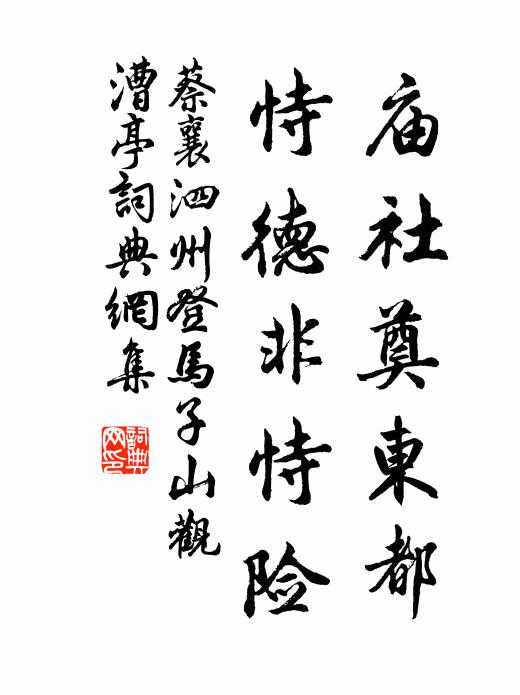 庙社奠東都
恃德非恃险
蔡襄泗州登馬子山觀
漕亭詞典網集
詞典
网印